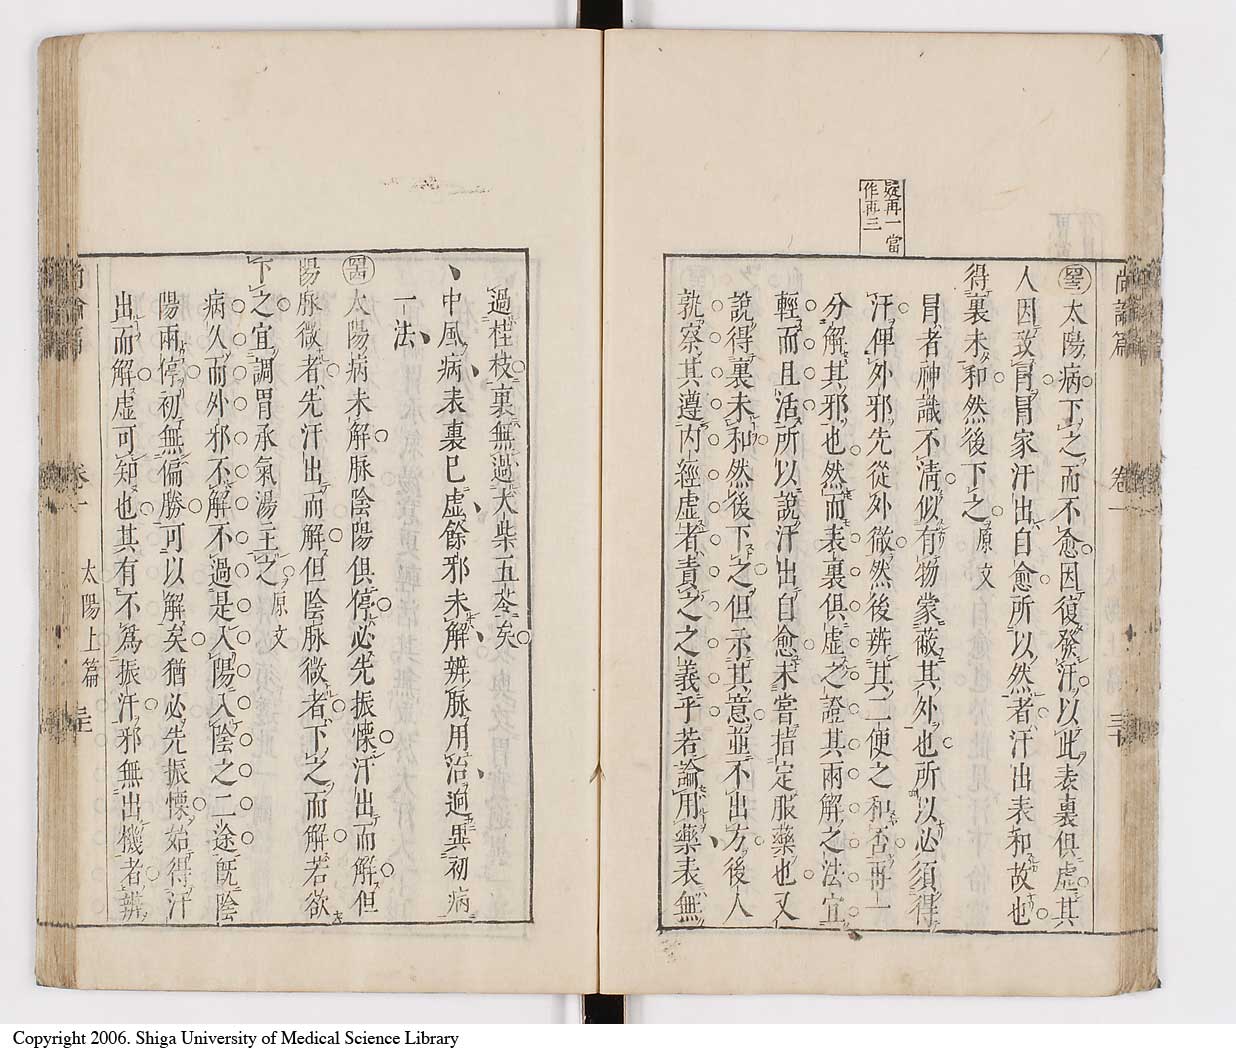 疑再一當
作再三
尚論篇 卷一 三十
太陽病下之而不愈因復發汗以此表裏俱虛其
人因致冒冒家汗出自愈所以然者汗出表和故也
得裏未和然後下之原文
冒者神識不清似有物蒙蔽其外也所以必須得
汗俾外邪先從外徹然後辨其二便之和否再一
分解其邪也然而表裏俱虛之證其兩解之法宜
輕而且活所以說汗出自愈未嘗指定服藥也又
說得裏未和然後下之但示其意並不出方後人
孰察其遵內經虛者責之之義乎若論用藥表無
過桂枝裏無過大柴五苓矣
中風病表裏已虛餘邪未解辨脈用治逈異初病
一法
太陽病未解脈陰陽俱停必先振慄汗出而解但
陽脈微者先汗出而解但陰脈微者下之而解若欲
下之宜調胃承氣湯主之原文
病久而外邪不解不過是入陽入陰之二途既陰
陽兩停初無偏勝可以解矣猶必先振慄始得汗
出而解虛可知也其有不爲振汗邪無出機者辨
太陽上篇
Copyright 2006. Shiga University of Medical Science Library